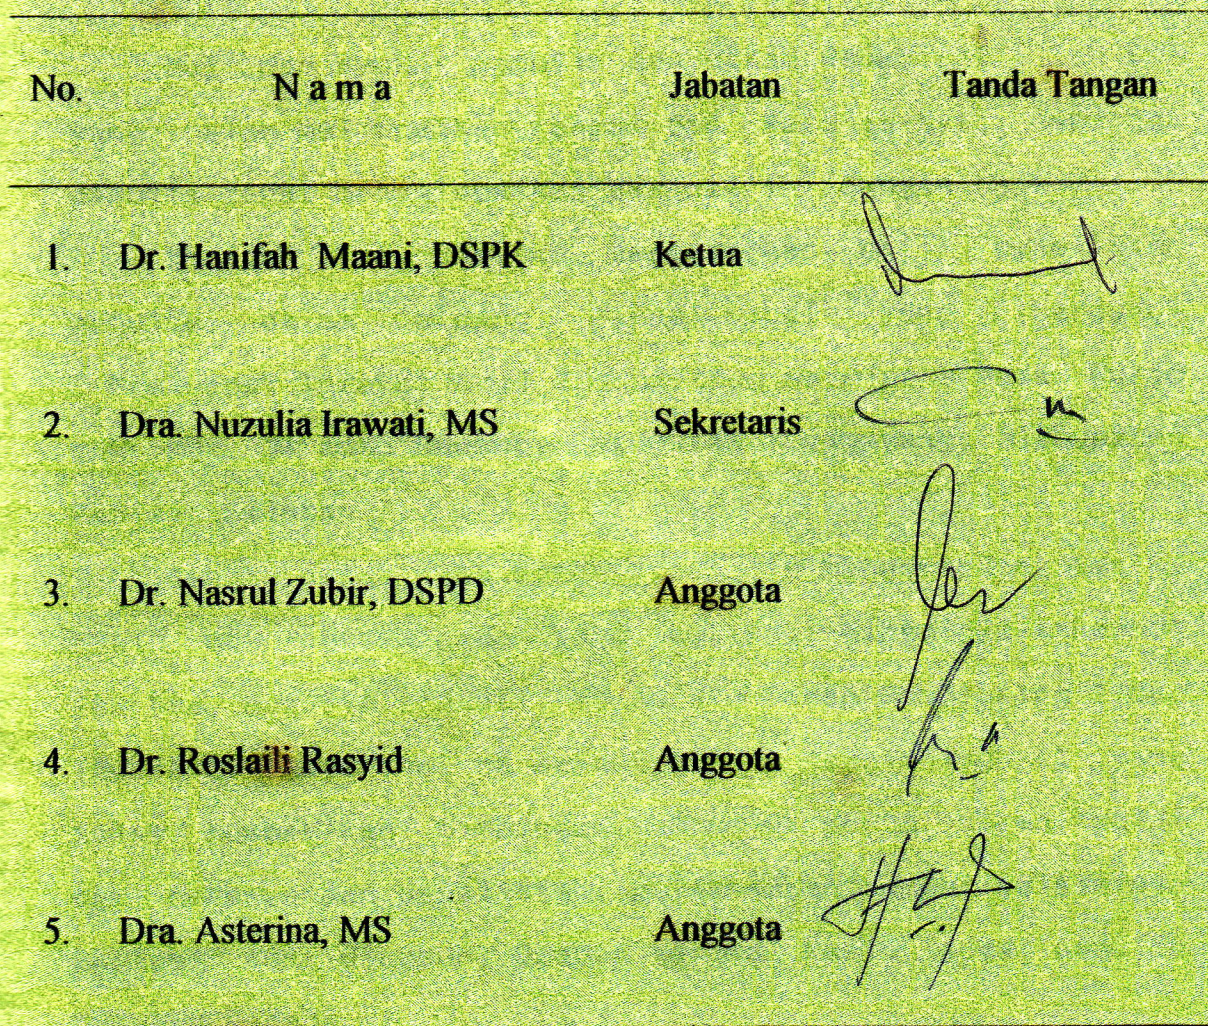 No. N a m a Jabatan Tanda Tangan
1. Dr. Hanifah Maani, DSPK Ketua
2. Dra. Nuzulia Irawati, MS Sekretaris
3. Dr. Nasrul Zubir, DSPD Anggota
4. Dr. Roslaili Rasyid Anggota
5. Dra. Asterina, MS Anggota